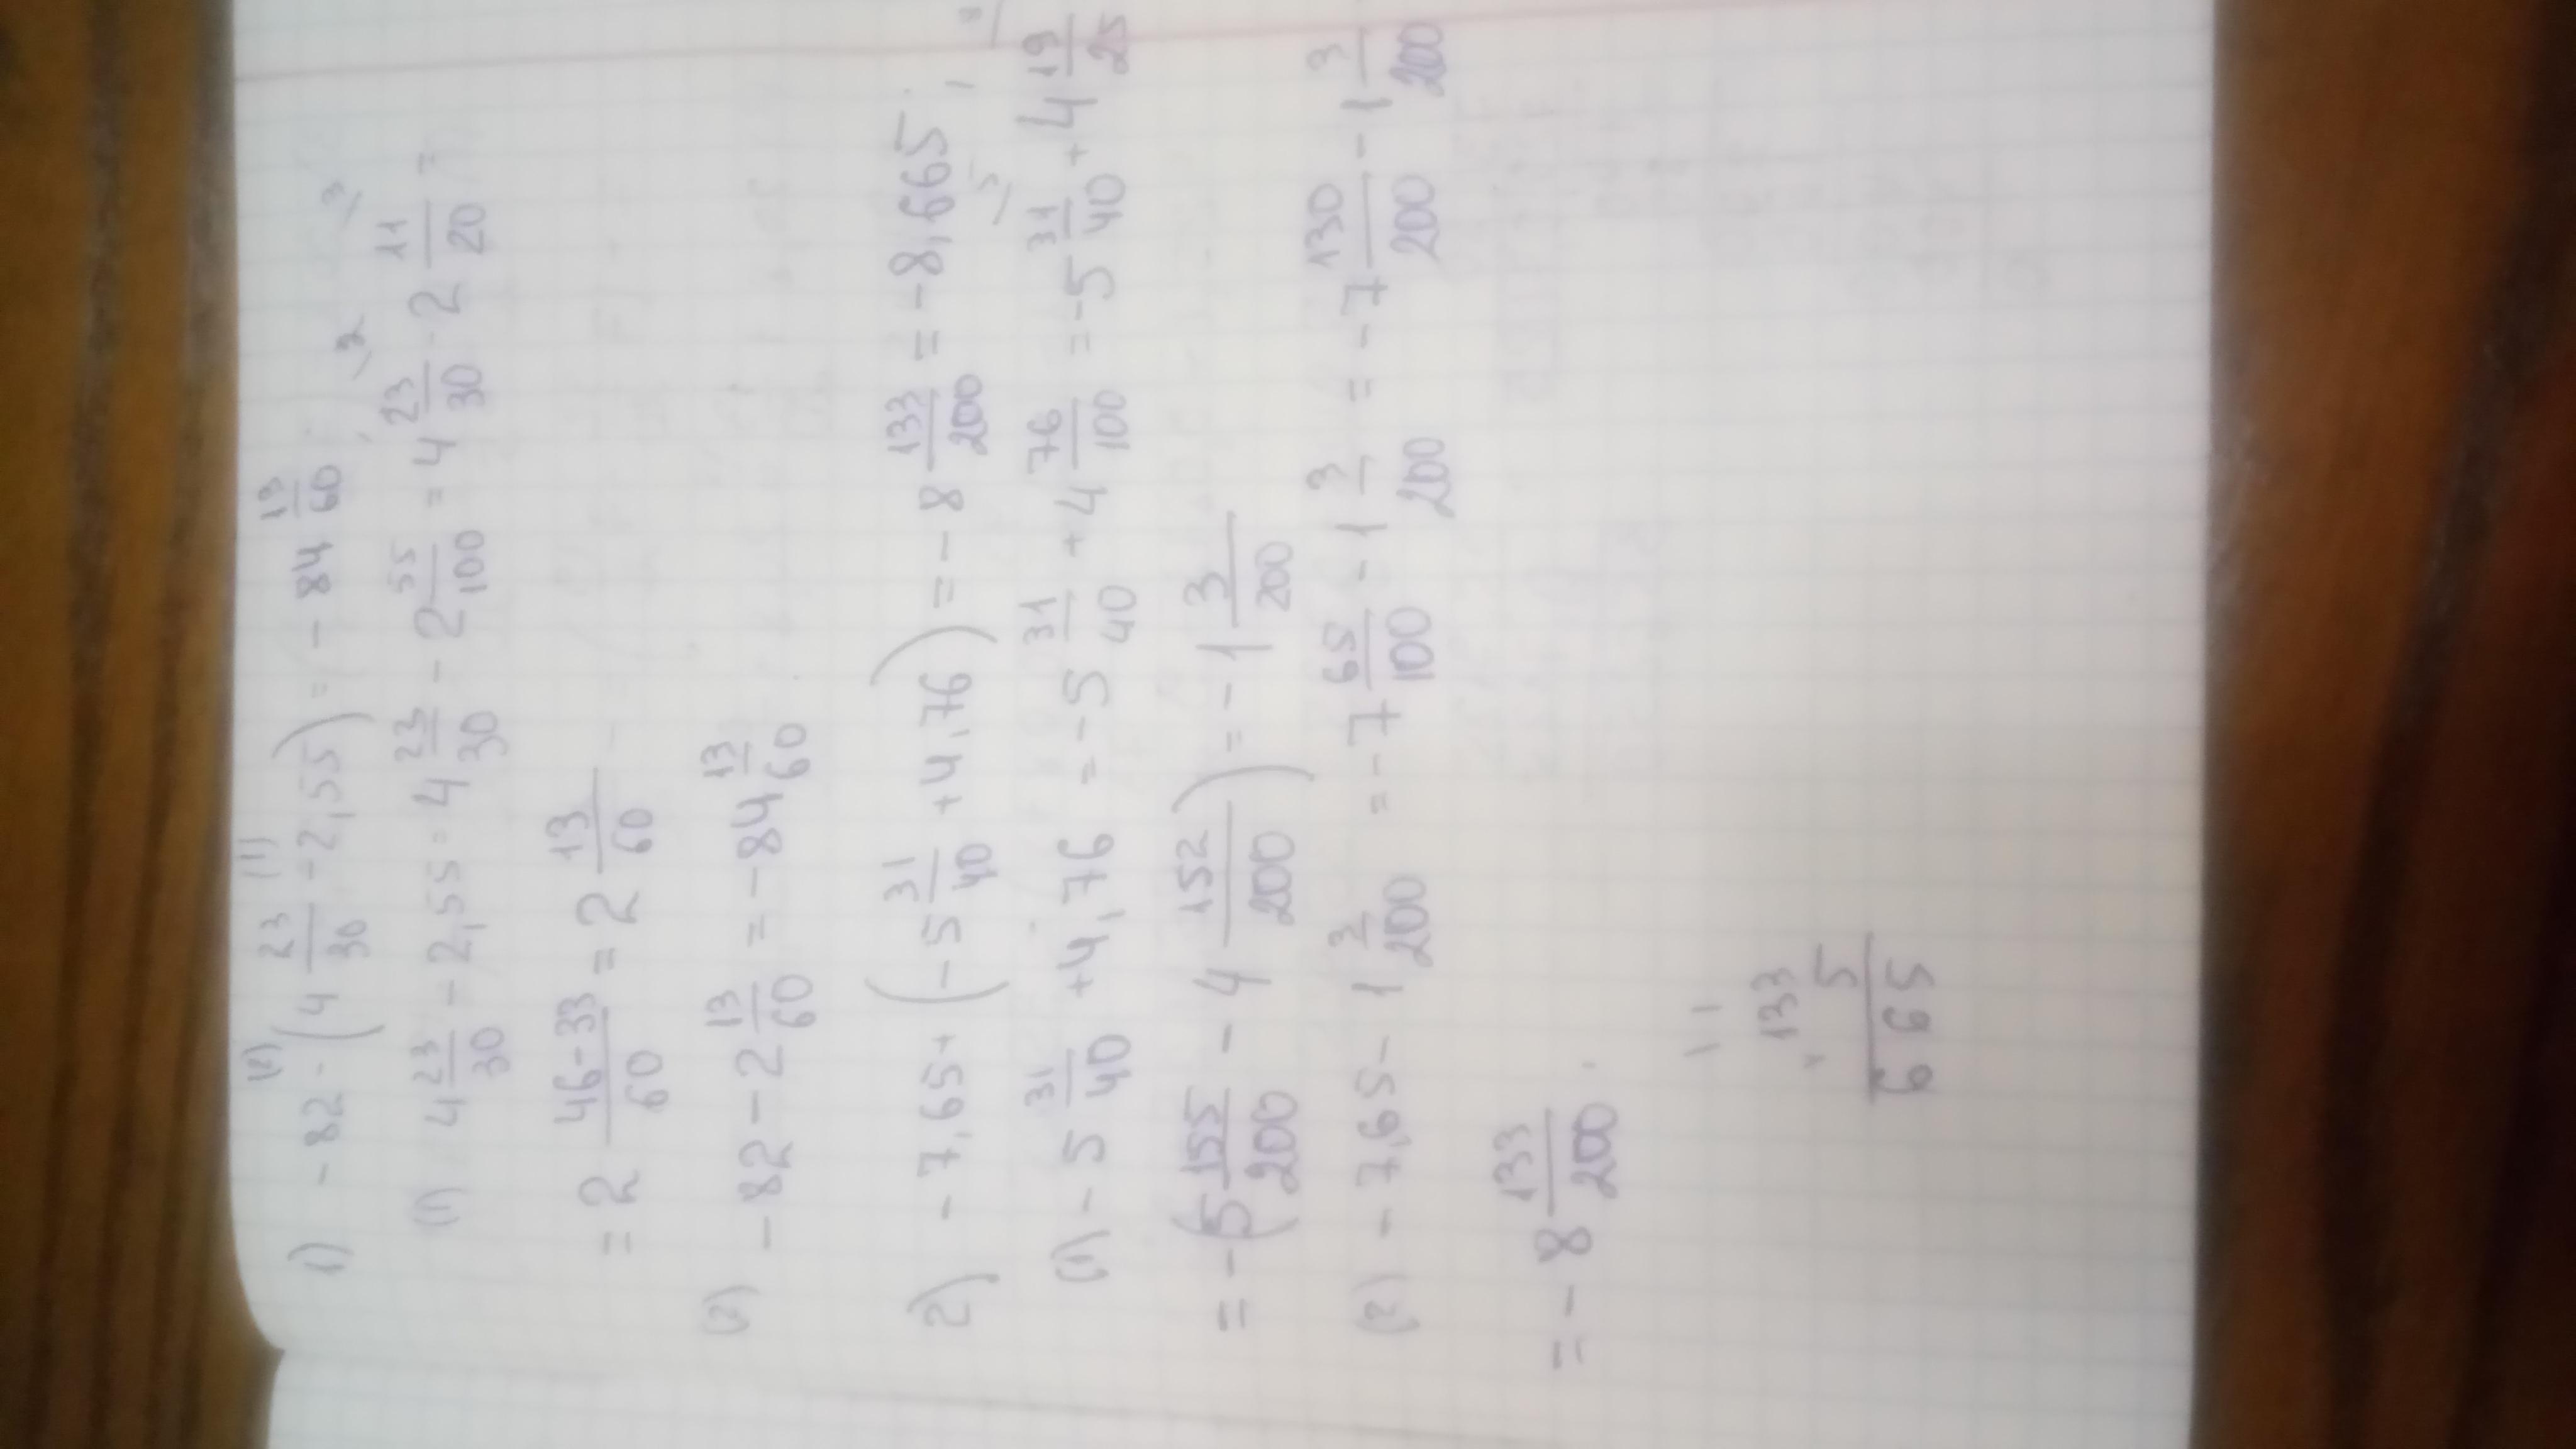 1) -82 - (4 23/30 - 2,55) = -84 13/60;
(1) 4 23/30 - 2,55 = 4 23/30 - 2 55/100 = 4 23/30 - 2 11/20 =
= 2 46-33/60 = 2 13/60
(2) -82 - 2 13/60 = -84 13/60.
2) -7,65 + (-5 31/40 + 4,76) = -8 133/200 = -8,665;
(1) -5 31/40 + 4,76 = -5 31/40 + 4 76/100 = -5 31/40 + 4 19/25
= -(5 155/200 - 4 152/200) = -1 3/200
(2) -7,65 - 1 3/200 = -7 65/100 - 1 3/200 = -7 130/200 - 1 3/200
= -8 133/200.
1 1
133
5
665